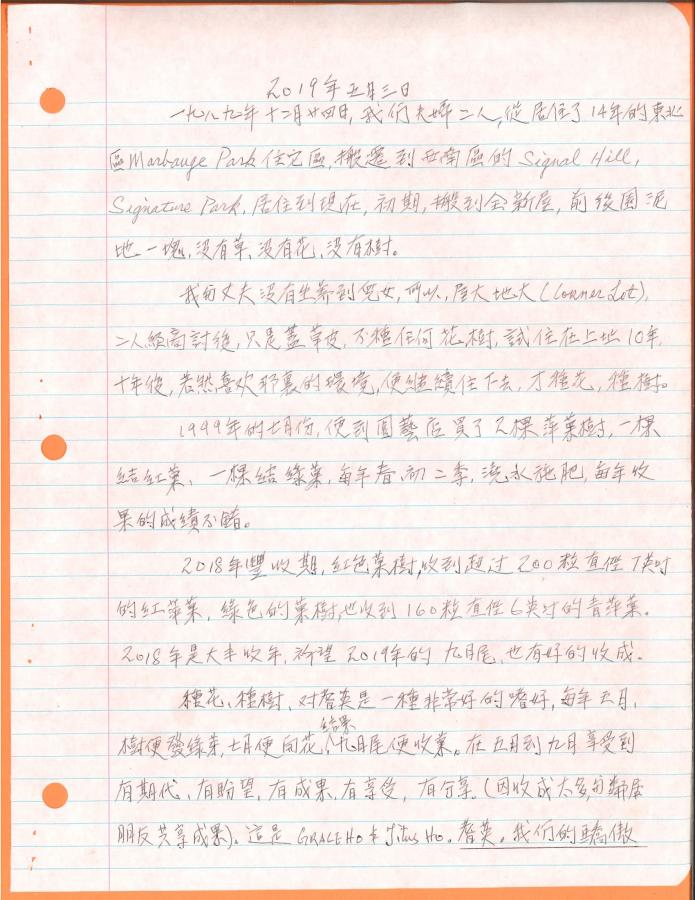 2019年五月三日
一九八九年十二月廿四日,我们夫婦二人,從居住了14年的東北
區Marbauge Park住宅區,搬遷到西南區的Signal Hill,
Signature Park,居住到現在,初期,搬到全新屋,前後園泥
地一塊,沒有草,沒有花,沒有樹。
我和丈夫沒有生養到兒女,所以,屋大地大(Corner Lot),
二人經商討後,只是蓋草皮,不種任何花樹,試住在上址10年,
十年後,若然喜欢那裏的環境,便继續住下去,才種花,種樹。
1999年的七月份,便到園藝店買了2棵萍菓樹,一棵
結紅菓、一棵結綠菓,每年春、初二季,澆水施肥,每年收
果的成績不錯。
2018年豐收期,紅色菓樹,收到超过200粒直徑7英吋
的紅萍菓,綠色的菓樹,也收到160粒直徑6英吋的青萍菓。
2018年是大丰收年,祈望2019年的九月尾,也有好的收成。
種花、種樹,对 是一種非常好的嗜好,每年五月,
樹便發綠芽,七月便開花,結果,九月尾便收菓。在五月到九月享受到
有期代、有盼望,有成果,有享受,有分享,(因收成太多,分鄰居
朋友共享成果)。這是GRACE HO & Titus Ho。 我们的驕傲